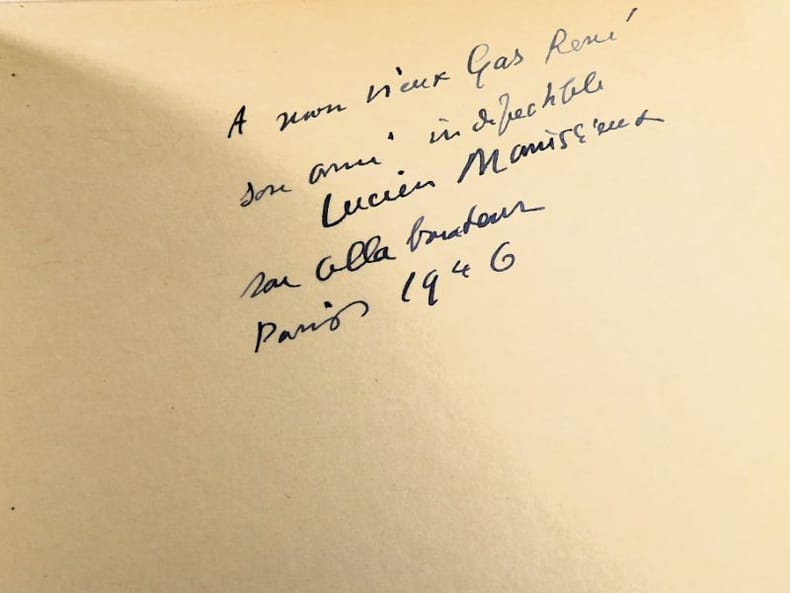 A mon vieux Gas René
son ami indefectible
Lucien Manissieux
son collaborateur
Paris 1946